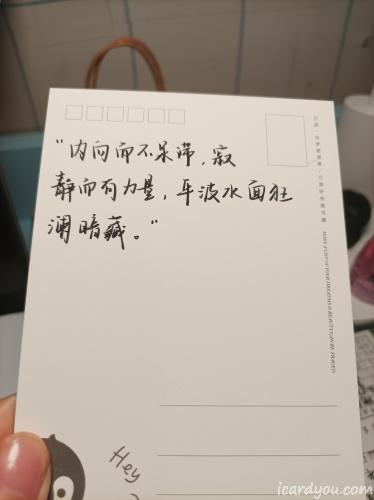 “内向而不呆滞，寂
静而有力量，平波水面狂
澜暗藏。”
Hey
icardyou.com